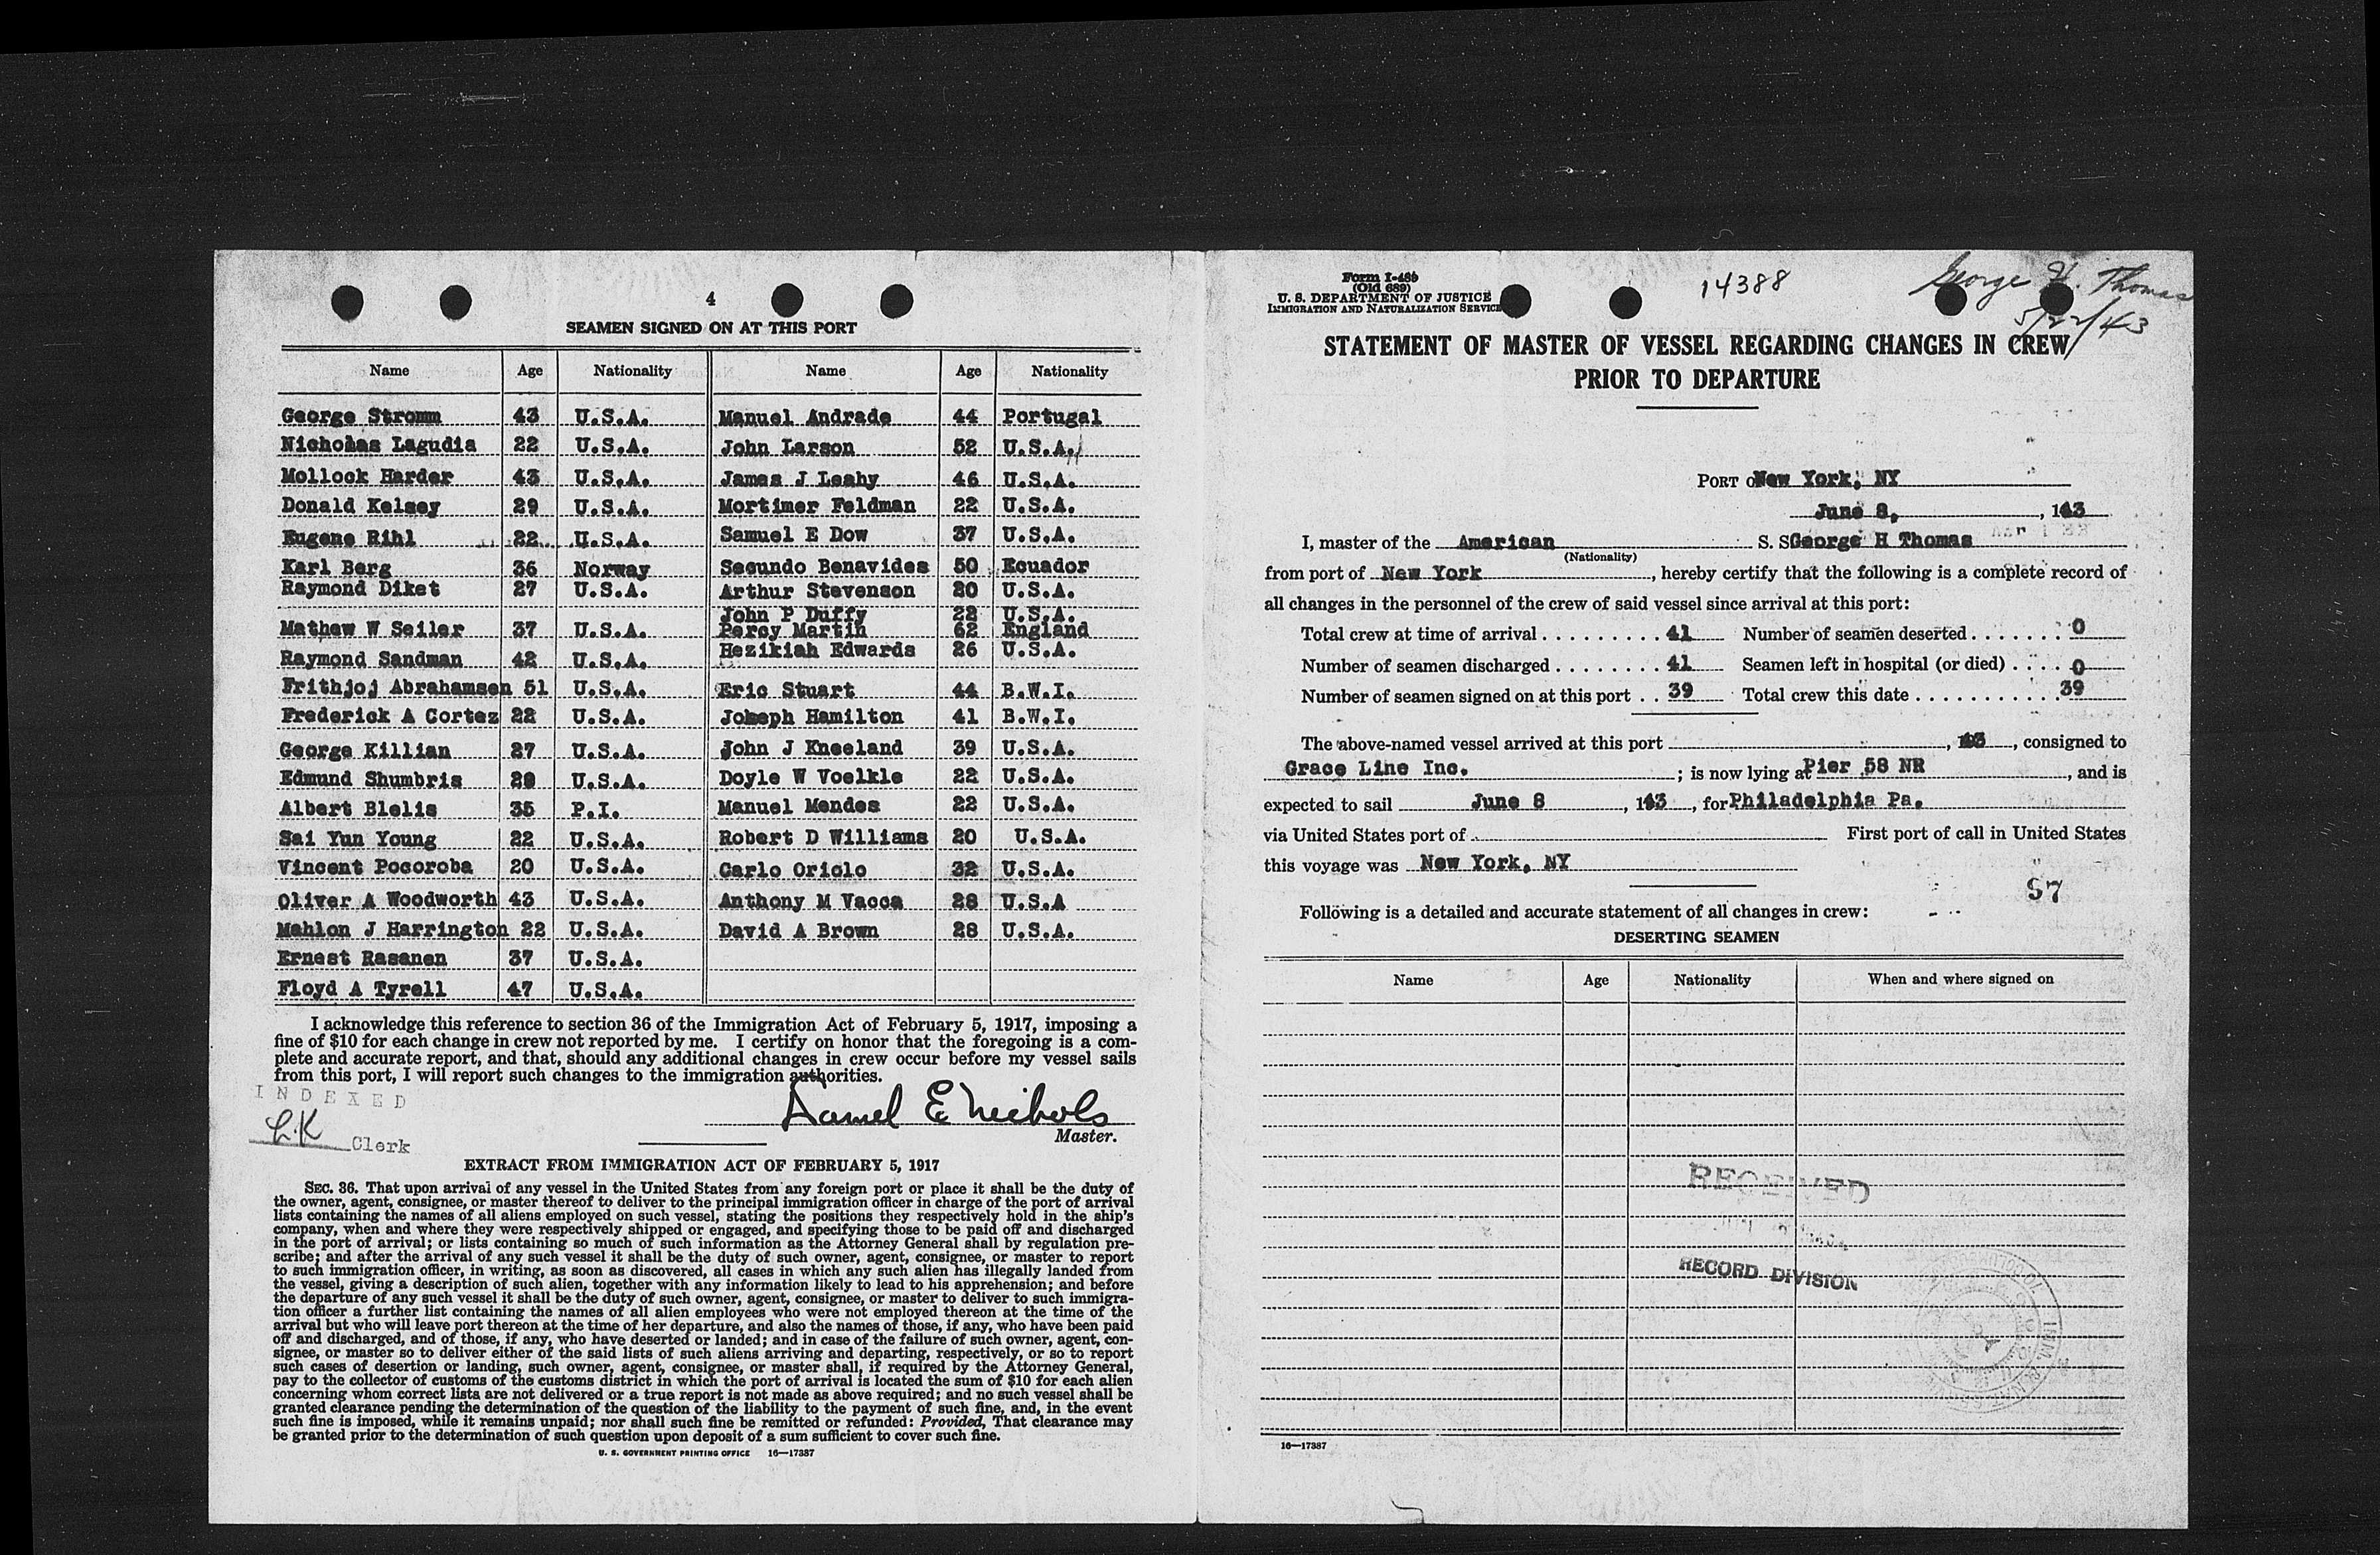 4
SEAMEN SIGNED ON AT THIS PORT
Name Age Nationality Name Age Nationality
George Stromm 43 U.S.A. Manuel Andrade 44 Portugal
Nicholas Lagudia 22 U.S.A. John Larson 52 U.S.A.
Mollock Harder 43 U.S.A. James J Leahy 46 U.S.A.
Donald Kelsey 29 U.S.A. Mortimer Feldman 22 U.S.A.
Eugene Rihl 22 U.S.A. Samuel E Dow 37 U.S.A.
Karl Berg 36 Norway Secundo Benavides 50 Ecuador
Raymond Diket 27 U.S.A. Arthur Stevenson 20 U.S.A.
John P Duffy 22 U.S.A.
Mathew W Seiler 37 U.S.A. Percy Martin 62 England
Raymond Sandman 42 U.S.A. Hezikiah Edwards 26 U.S.A.
Frithjoj Abrahamsen 51 U.S.A. Eric Stuart 44 B.W.I.
Frederick A Cortez 22 U.S.A. Joheph Hamilton 41 B.W.I.
George Killian 27 U.S.A. John J Kneeland 39 U.S.A.
Edmund Shumbris U.S.A. Doyle W Voelkle 22 U.S.A.
Albert Blelis 35 P.I. Manuel Mendes 22 U.S.A.
Sai Yun Young 22 U.S.A. Robert D Williams 20 U.S.A.
Vincent Pocoroba 20 U.S.A. Carlo Oriolo 32 U.S.A.
Oliver A Woodworth 43 U.S.A. Anthony M Vacca 28 U.S.A
Mahlon J Harrington 22 U.S.A. David A Brown 28 U.S.A.
Ernest Rasanen 37 U.S.A.
Floyd A Tyrell 47 U.S.A.
I acknowledge this reference to section 36 of the Immigration Act of February 5, 1917, imposing a
fine of $10 for each change in crew not reported by me. I certify on honor that the foregoing is a com-
plete and accurate report, and that, should any additional changes in crew occur before my vessel sails
from this port, I will report such changes to the immigration authorities.
INDEXED
L.K Clerk
Daniel E Nichols
Master.
EXTRACT FROM IMMIGRATION ACT OF FEBRUARY 5, 1917
SEC. 36. That upon arrival of any vessel in the United States from any foreign port or place it shall be the duty of
the owner, agent, consignee, or master thereof to deliver to the principal immigration officer in charge of the port of arrival
lists containing the names of all aliens employed on such vessel, stating the positions they respectively hold in the ship's
company, when and where they were respectively shipped or engaged, and specifying those to be paid off and discharged
in the port of arrival; or lists containing so much of such information as the Attorney General shall by regulation pre-
scribe; and after the arrival of any such vessel it shall be the duty of such owner, agent, consignee, or master to report
to such immigration officer, in writing, as soon as discovered, all cases in which any such alien has illegally landed from
the vessel, giving a description of such alien, together with any information likely to lead to his apprehension; and before
the departure of any such vessel it shall be the duty of such owner, agent, consignee, or master to deliver to such immigra-
tion officer a further list containing the names of all alien employees who were not employed thereon at the time of the
arrival but who will leave port thereon at the time of her departure, and also the names of those, if any, who have been paid
off and discharged, and of those, if any, who have deserted or landed; and in case of the failure of such owner, agent, con-
signee, or master so to deliver either of the said lists of such aliens arriving and departing, respectively, or so to report
such cases of desertion or landing, such owner, agent, consignee, or master shall, if required by the Attorney General,
pay to the collector of customs of the customs district in which the port of arrival is located the sum of $10 for each alien
concerning whom correct lists are not delivered or a true report is not made as above required; and no such vessel shall be
granted clearance pending the determination of the question of the liability to the payment of such fine, and, in the event
such fine is imposed, while it remains unpaid; nor shall such fine be remitted or refunded: Provided, That clearance may
be granted prior to the determination of such question upon deposit of a sum sufficient to cover such fine.
U. S. GOVERNMENT PRINTING OFFICE 16—17387
Form I-489
(Old 689)
U. S. DEPARTMENT OF JUSTICE
IMMIGRATION AND NATURALIZATION SERVICE
14388
George H. Thomas
5/22/43
STATEMENT OF MASTER OF VESSEL REGARDING CHANGES IN CREW
PRIOR TO DEPARTURE
PORT OF New York, NY
June 8, 143
I, master of the American S. S. George H Thomas
(Nationality)
from port of New York, hereby certify that the following is a complete record of
all changes in the personnel of the crew of said vessel since arrival at this port:
Total crew at time of arrival 41 Number of seamen deserted 0
Number of seamen discharged 41 Seamen left in hospital (or died) 0
Number of seamen signed on at this port 39 Total crew this date 39
The above-named vessel arrived at this port , 43, consigned to
Grace Line Inc. ; is now lying at Pier 58 NR, and is
expected to sail June 8, 143, for Philadelphia Pa.
via United States port of First port of call in United States
this voyage was New York, NY
57
Following is a detailed and accurate statement of all changes in crew:
DESERTING SEAMEN
Name Age Nationality When and where signed on
RECEIVED
RECORD DIVISION
16—17387